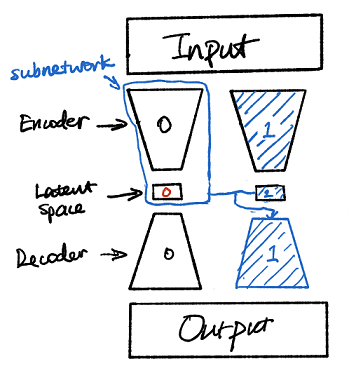 Input
subnetwork
Encoder
0
1
Latent
Space
0
1
Decoder
0
1
Output